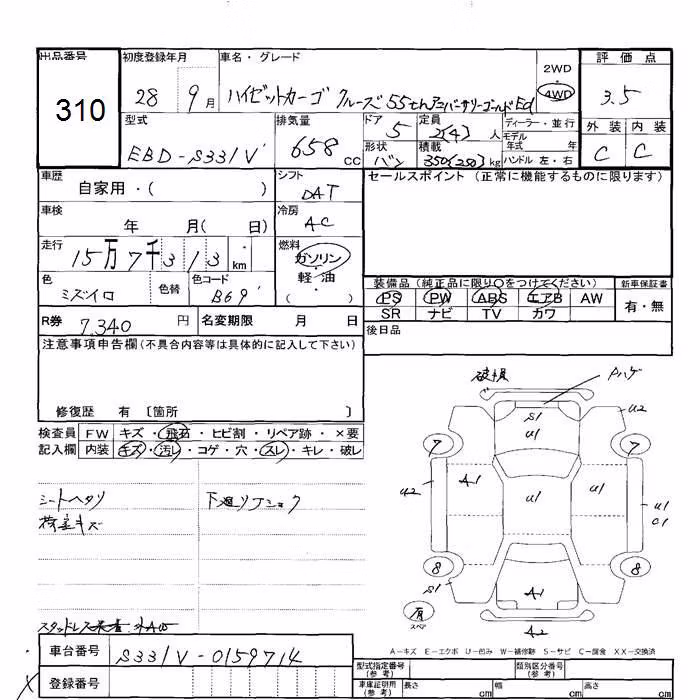 出品番号
310
初度登録年月
28 9月
車名・グレード
ハイゼットカーゴ クルーズ 55thアニバーサリーゴールドEd
2WD
4WD
評価点
3.5
外装 内装
C C
型式
EBD-S331V
排気量
658 cc
ドア
5
定員
2(4)人
形状
バン
積載
350(250)kg
ディーラー・並行
モデル
年式 年
ハンドル 左・右
車歴
自家用・( )
シフト
DAT
車検
年 月( 日)
冷房
AC
走行
15万7千313 km
燃料
ガソリン
軽・油
( )
色
ミズイロ
色替
色コード
B69
R券
7,340 円
名変期限 月 日
セールスポイント (正常に機能するものに限ります)
装備品 (純正品に限り○をつけてください)
新車保証書
PS PW ABS エアB AW
SR ナビ TV カワ
有・無
後日品
注意事項申告欄(不具合内容等は具体的に記入して下さい)
修復歴 有 〔箇所 〕
検査員
記入欄
FW キズ・飛石・ヒビ割・リペア跡・×要
内装 キズ・汚レ・コゲ・穴・スレ・キレ・破レ
シートヘタリ
下廻りフショク
荷室キズ
車台番号
S331V-0159714
登録番号
破損
Pハゲ
S1
U1
U2
7
7
A1
U2
U1
U1
U1
C1
8
8
S1
A1
有
スペア
A2
A－キズ E－エクボ U－凹み W－補修跡 S－サビ C－腐食 XX－交換済
型式指定番号
(参考)
類別区分番号
(参考)
車庫証明用
(参考)
長さ cm
幅 cm
高さ cm